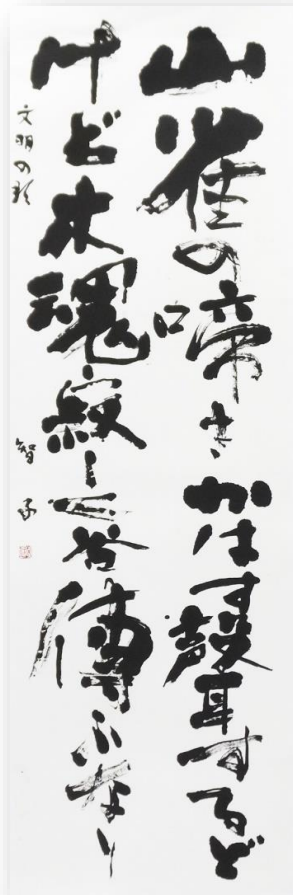 山雀の啼きかはす聲するど
けど木魂寂しく谷傳ふなり
文明の歌 智子